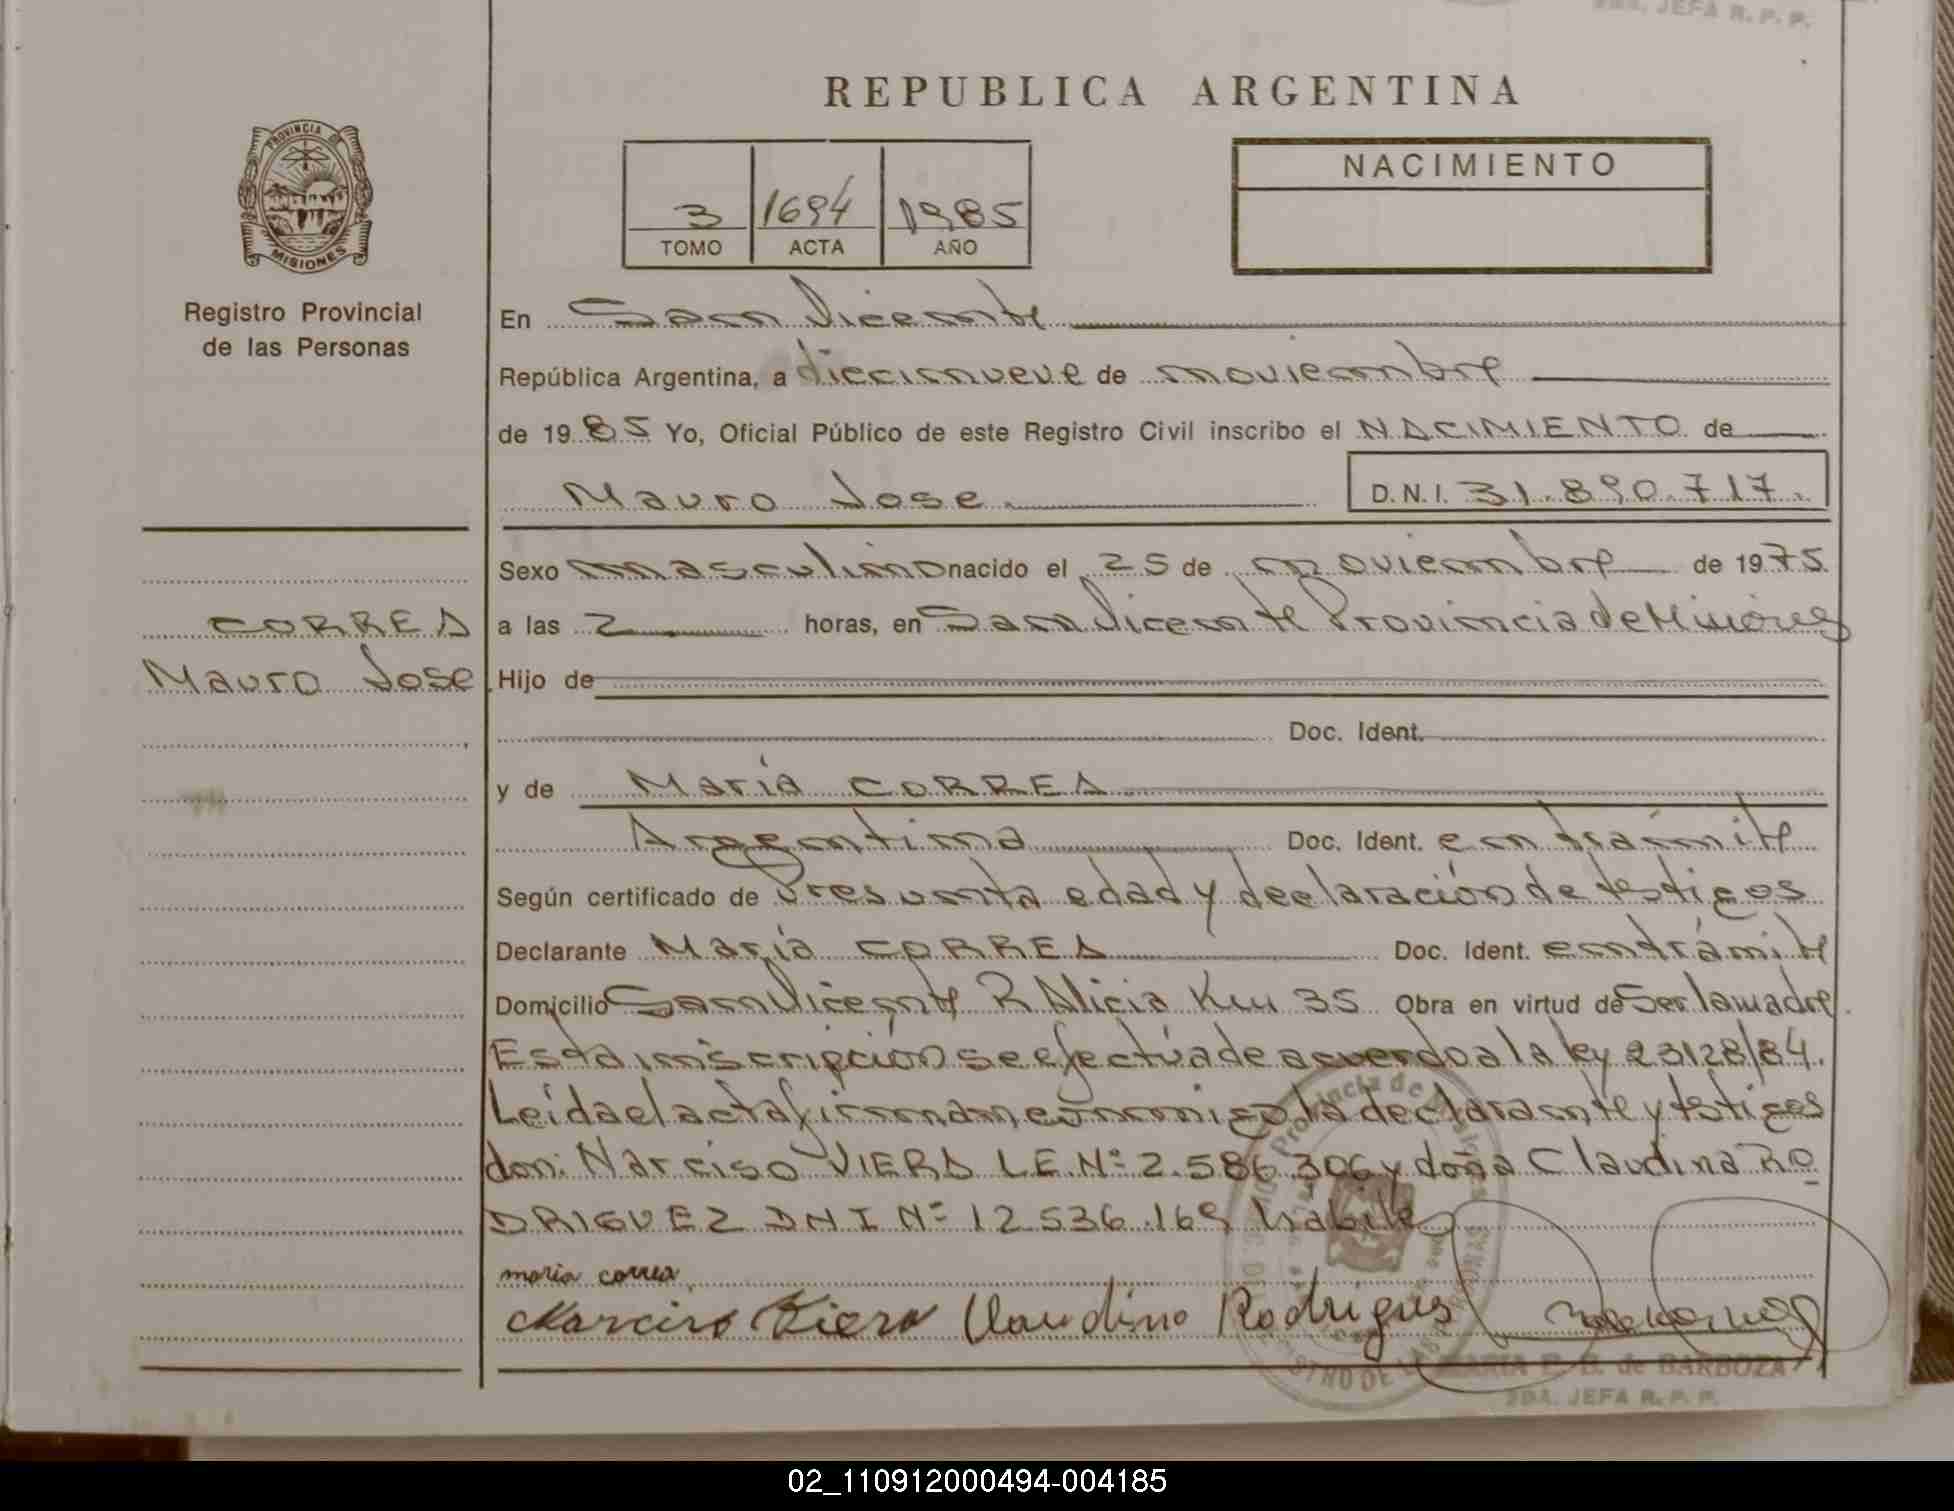 2DA. JEFA R. P. P.
REPUBLICA ARGENTINA
PROVINCIA DE
MISIONES
Registro Provincial
de las Personas
3 1694 1985
TOMO ACTA AÑO
NACIMIENTO
En San Vicente
República Argentina, a diecinueve de noviembre
de 1985 Yo, Oficial Público de este Registro Civil inscribo el NACIMIENTO de
Mauro Jose D.N.I. 31.890.717.
Sexo masculino nacido el 25 de noviembre de 1975.
CORREA
Mauro Jose
a las 2 horas, en San Vicente Provincia de Misiones
Hijo de
Doc. Ident.
y de María CORREA
Argentina Doc. Ident. en trámite
Según certificado de Presunta edad y declaración de testigos
Declarante María CORREA Doc. Ident. en trámite
Domicilio San Vicente P. Alicia Km 35 Obra en virtud de Ser la madre
Esta inscripción se efectúa de acuerdo a la ley 23128/84.
Leída el acta firman conmigo la declarante y testigos
don: Narciso VIERA L.E. Nº 2.586.306 y doña Claudina RO
DRIGUEZ DNI Nº 12.536.169 habiles
maria correa
Narciso Viera Claudino Rodrigues
MARIA de BARBOZA
2DA. JEFA R. P. P.
02_110912000494-004185